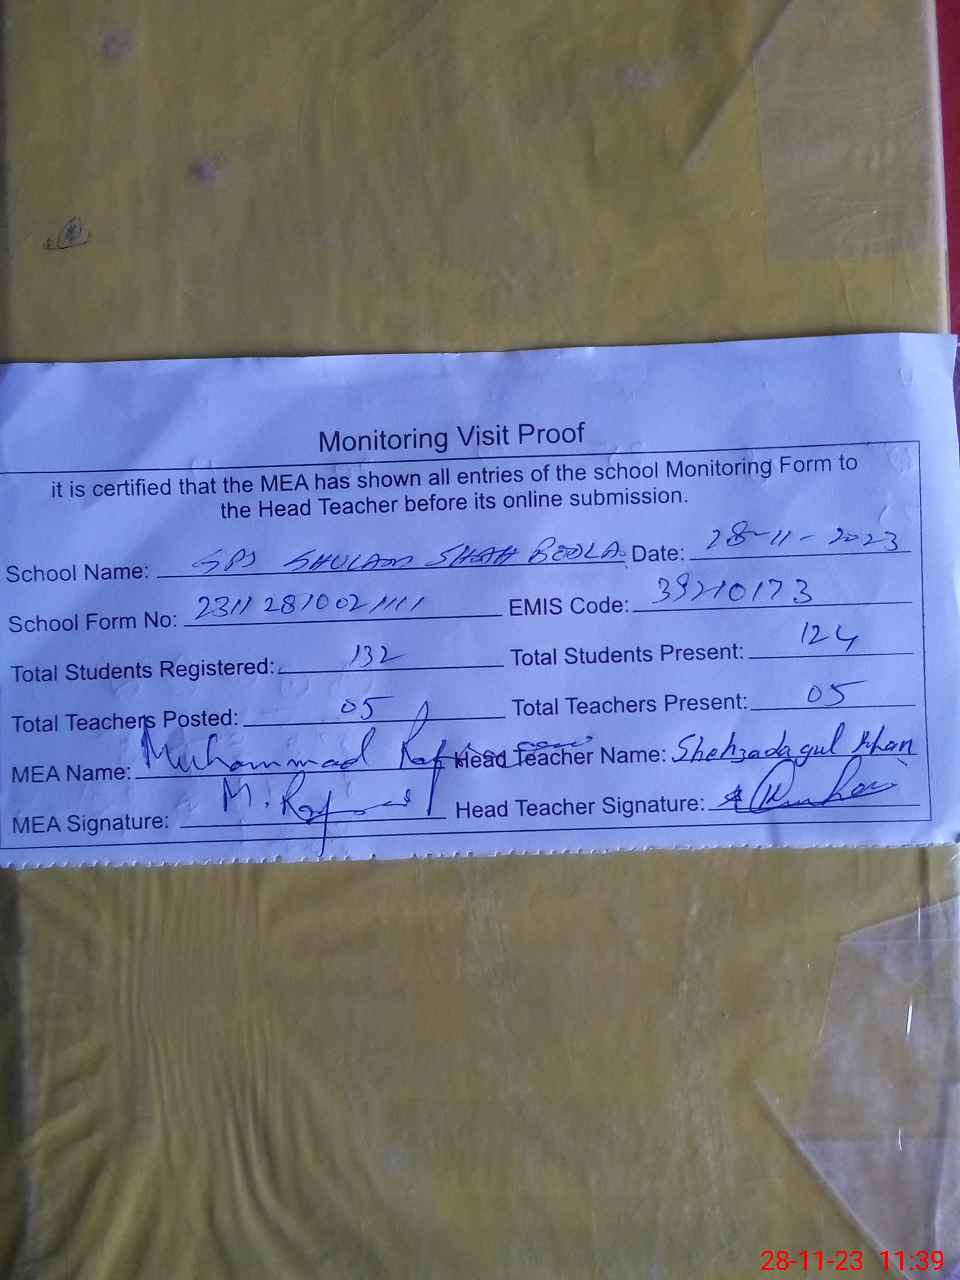 Monitoring Visit Proof
it is certified that the MEA has shown all entries of the school Monitoring Form to
the Head Teacher before its online submission.
School Name: GPS GHULAM SHAH BEOLA. Date: 28-11-2023
School Form No: 2311281002 EMIS Code: 39210173
Total Students Registered: 132 Total Students Present: 124
Total Teachers Posted: 05 Total Teachers Present: 05
MEA Name: Muhammad Head Teacher Name: Shehzada gul Khan
MEA Signature: M. Head Teacher Signature:
28-11-23 11:39